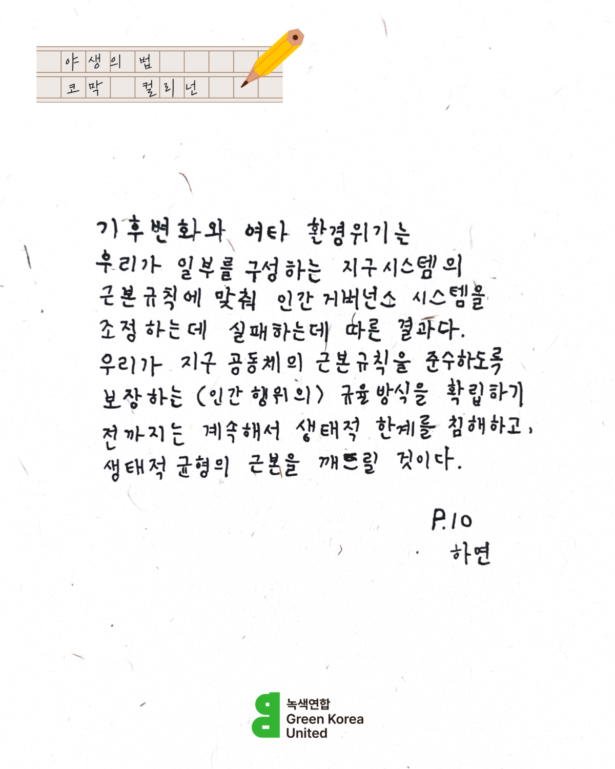 야생의 법
코막 컬리넌
기후변화와 여타 환경위기는
우리가 일부를 구성하는 지구시스템의
근본규칙에 맞춰 인간 거버넌스 시스템을
조정하는데 실패하는데 따른 결과다.
우리가 지구 공동체의 근본규칙을 준수하도록
보장하는 (인간행위의) 규율방식을 확립하기
전까지는 계속해서 생태적 한계를 침해하고,
생태적 균형의 근본을 깨뜨릴 것이다.
P.10
하연
녹색연합
Green Korea
United